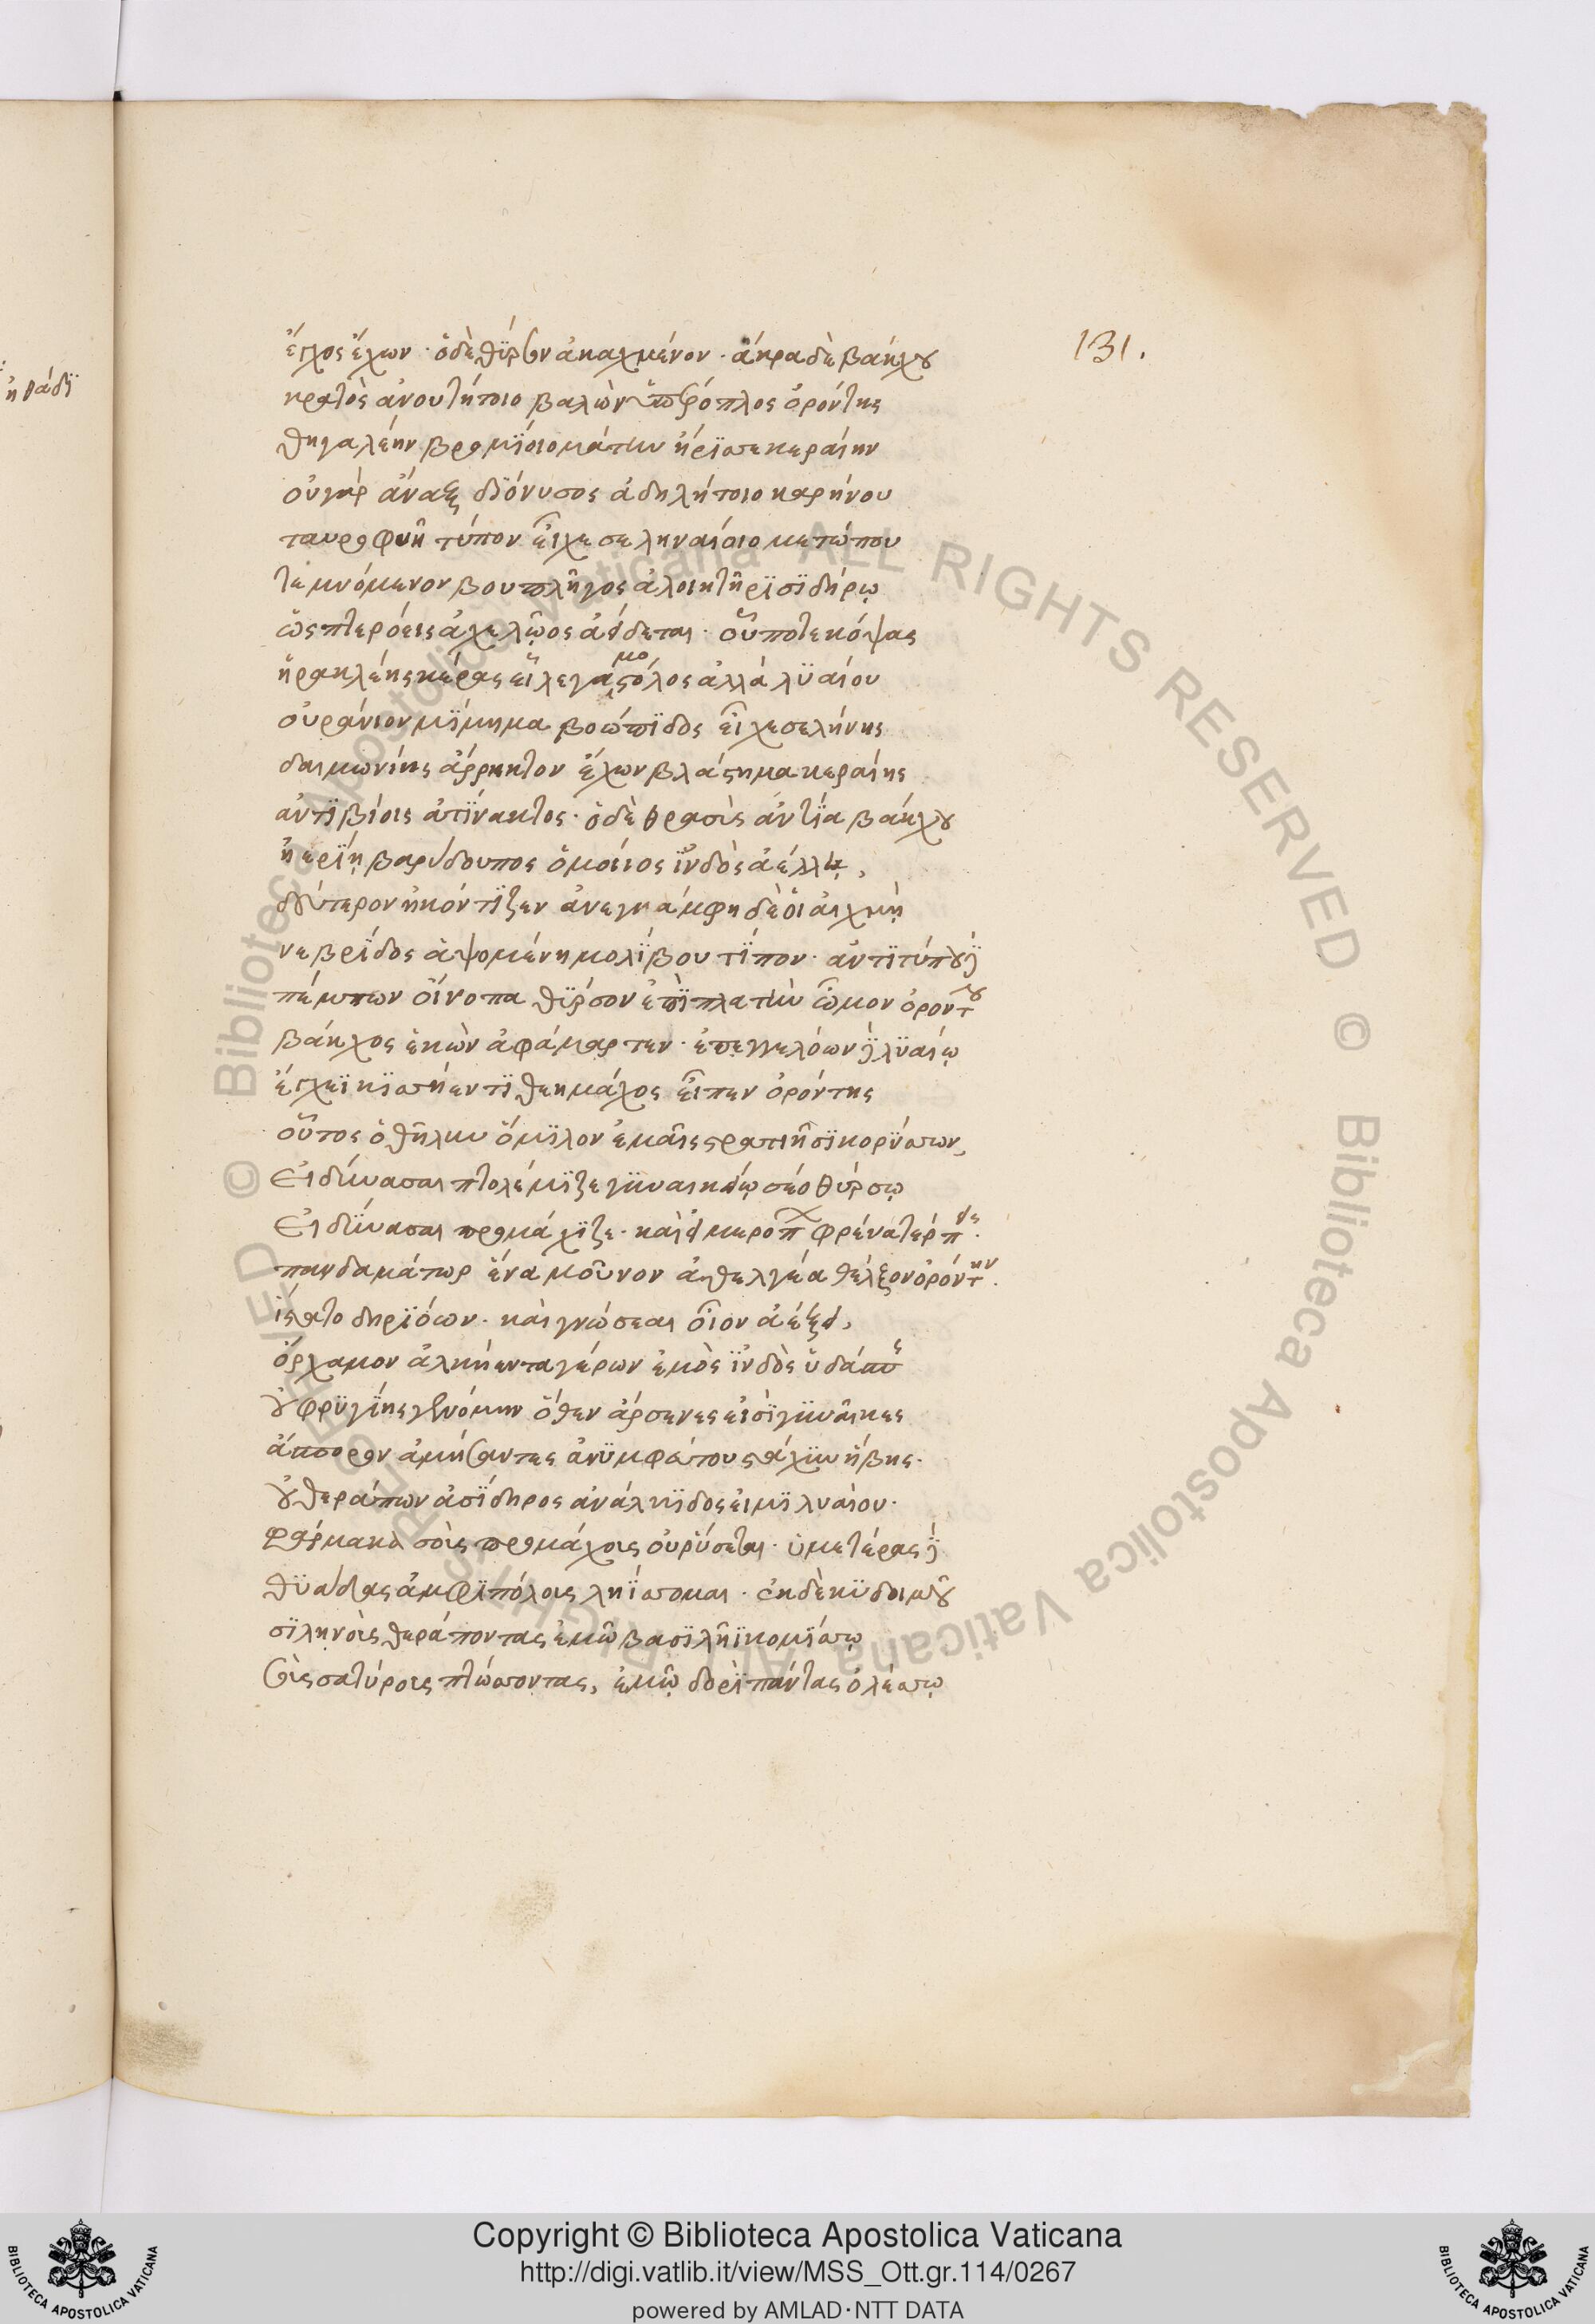 131.
ἔγχος ἔχων · ὁ δὲ θύρσον ἀκαχμένον · ἄκρα δὲ βάκχου
κρατὸς ἀνουτήτοιο βαλὼν ὑπέροπλος ὀρόντης
θηγαλέην βρομίοιο μάτην ἤρισσε κεραίην
οὐ γὰρ ἄναξ διόνυσος ἀδηλήτοιο καρήνου
ταυροφυῆ τύπον εἶχε σεληναίοιο μετώπου
τεμνόμενον βουπλῆγος ἀλοιητῆρι σιδήρῳ
ὡς πτερόεις ἀχελῷος ἀείδεται · οὗ ποτε κόψας
ἡρακλέης κέρας εἷλε γαμοστόλος ἀλλὰ λυαίου
οὐράνιον μίμημα βοώπιδος εἶχε σελήνης
δαιμονίης ἄρρηκτον ἔχων βλάστημα κεραίης
ἀντιβίοις ἀτίνακτος · ὁ δὲ θρασὺς ἀντία βάκχου
ἠερίῃ βαρύδουπος ὁμοίιος ἰνδὸς ἀέλλῃ,
δεύτερον ἠκόντιζεν ἀνεγνάμφη δὲ οἱ αἰχμὴ
νεβρίδος ἁψομένη μολίβου τύπον · ἀντιτύπου δὲ
πέμπων οἴνοπα θύρσον ἐπὶ πλατὺν ὦμον ὀρόντου
βάκχος ἑκὼν ἀφάμαρτεν · ἐπεγγελόων δὲ λυαίῳ
ἔγχεϊ κισσήεντι θεημάχος εἶπεν ὀρόντης
οὗτος ὁ θῆλυν ὅμιλον ἐμαῖς στρατιῇσι κορύσσων,
Εἰ δύνασαι πτολέμιζε γυναικείῳ σέο θύρσῳ
Εἰ δύνασαι προμάχιζε · καὶ εἰ μερόπων φρένα τέρπεις.
πανδαμάτωρ ἕνα μοῦνον ἀθελγέα θέλξον ὀρόντην.
ἵστατο δηριόων · καὶ γνώσεαι οἷον ἀέξει,
ὄρχαμον ἀλκήεντα γέρων ἐμὸς ἰνδὸς ὑδάσπης
οὐ φρυγίης γενόμην ὅθεν ἄρσενες εἰσὶ γυναῖκες
ἄσπορον ἀμήσαντες ἀνυμφεύτου στάχυν ἥβης.
οὐ θεράπων ἀσίδηρος ἀνάλκιδος εἰμὶ λυαίου·
φάρμακα σοῖς προμάχοις οὐ ῥύσεται · ὑμετέρας δὲ
θυιάδας ἀμφιπόλοις ληίσσομαι · ἐκ δὲ κυδοιμοῦ
σιληνοὺς θεράποντας ἐμῷ βασιλῆι κομίσσω
σοὺς σατύρους πτώσσοντας, ἐμῷ δορὶ πάντας ὀλέσσω
Copyright © Biblioteca Apostolica Vaticana
http://digi.vatlib.it/view/MSS_Ott.gr.114/0267
powered by AMLAD·NTT DATA
BIBLIOTECA APOSTOLICA VATICANA
BIBLIOTECA APOSTOLICA VATICANA
© Biblioteca Apostolica Vaticana ALL RIGHTS RESERVED © Biblioteca Apostolica Vaticana ALL RIGHTS RESERVED